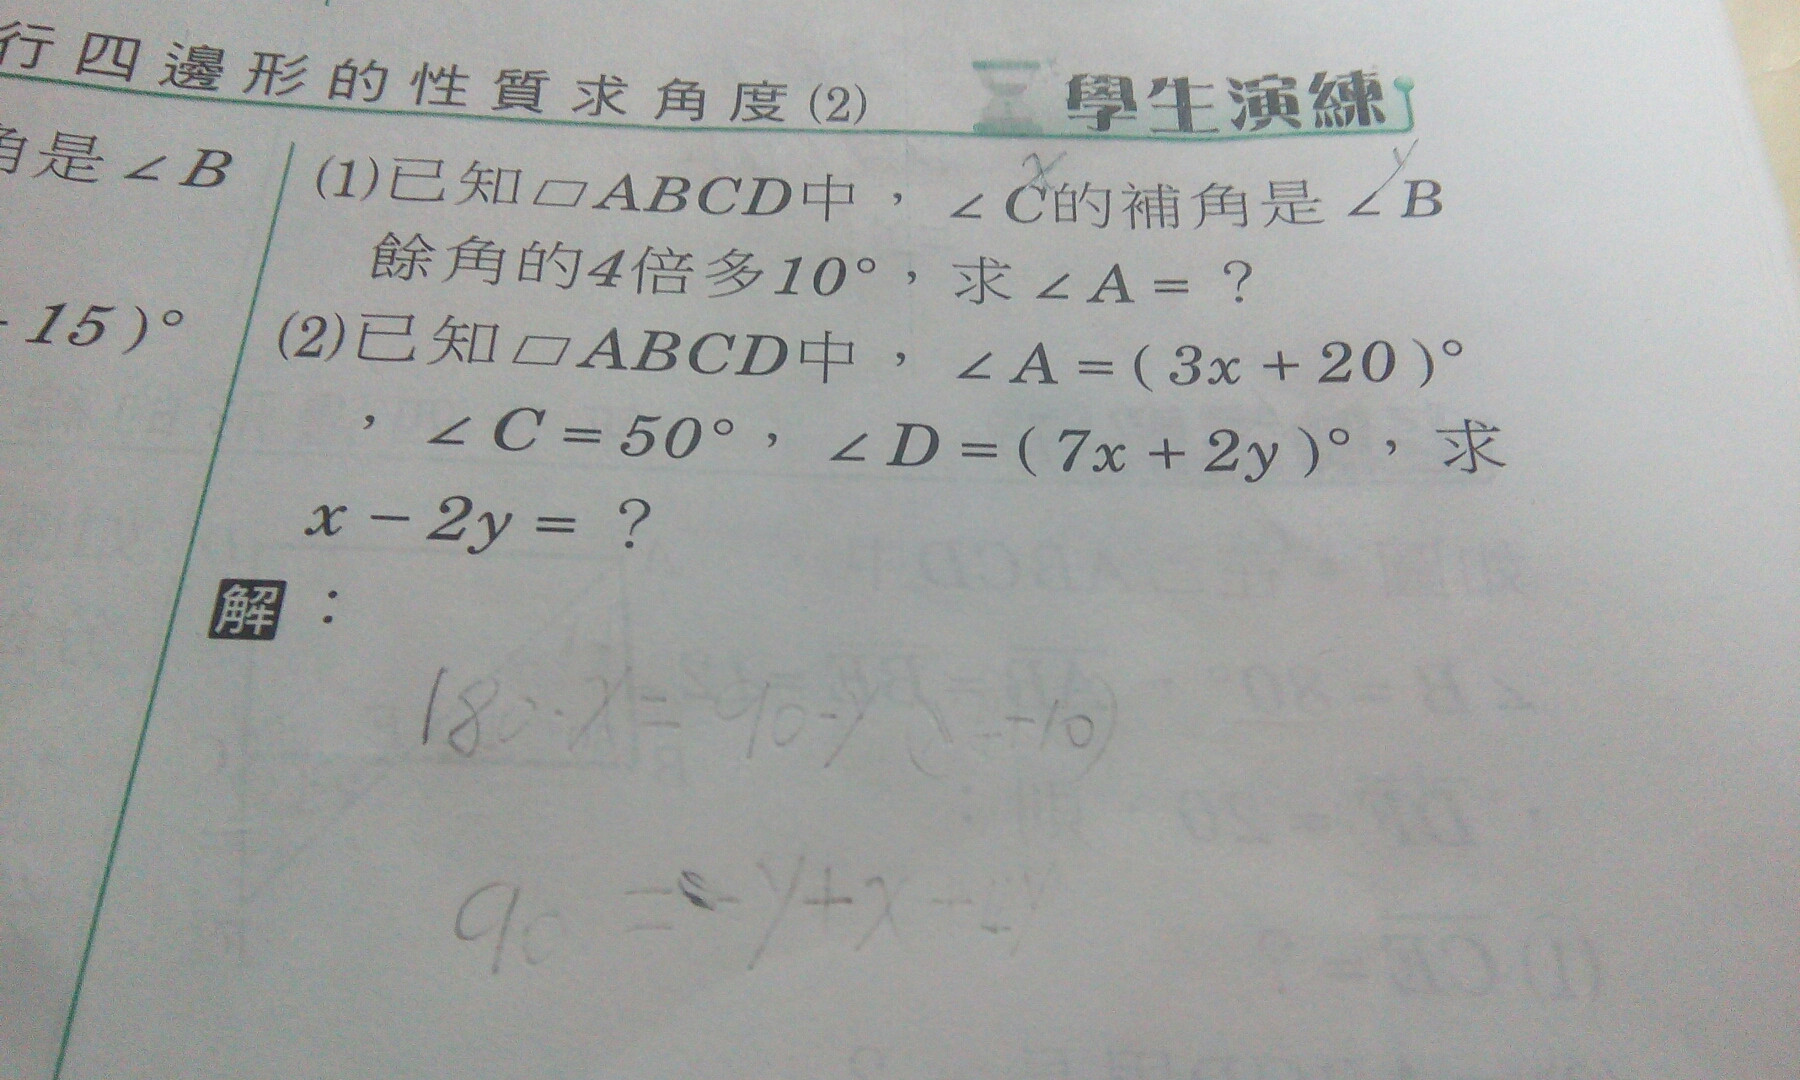 行四邊形的性質求角度(2) 學生演練
角是∠B
15)°
(1)已知▱ABCD中，∠C的補角是∠B
x y
餘角的4倍多10°，求∠A=？
(2)已知▱ABCD中，∠A=(3x+20)°
，∠C=50°，∠D=(7x+2y)°，求
x-2y=？
解：
180-x=90-y
90=-y+x